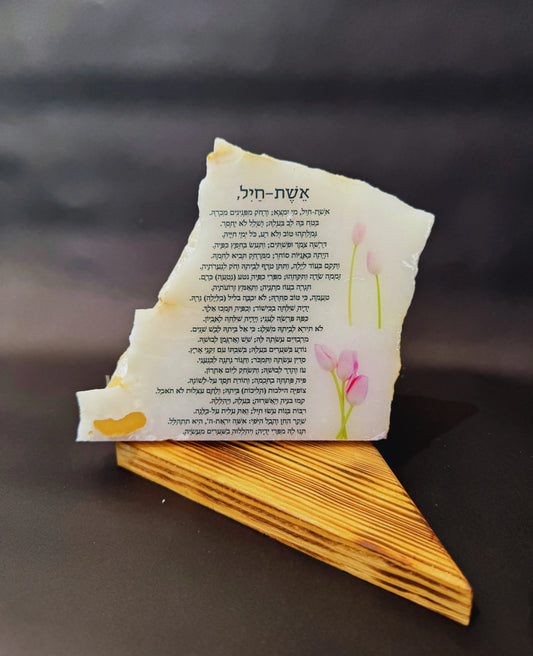 אֵשֶׁת-חַיִל,
אֵשֶׁת-חַיִל, מִי יִמְצָא; וְרָחֹק מִפְּנִינִים מִכְרָהּ.
בָּטַח בָּהּ לֵב בַּעְלָהּ; וְשָׁלָל לֹא יֶחְסָר.
גְּמָלַתְהוּ טוֹב וְלֹא רָע, כֹּל יְמֵי חַיֶּיהָ.
דָּרְשָׁה צֶמֶר וּפִשְׁתִּים; וַתַּעַשׂ בְּחֵפֶץ כַּפֶּיהָ.
הָיְתָה כָּאֳנִיּוֹת סוֹחֵר; מִמֶּרְחָק תָּבִיא לַחְמָהּ.
וַתָּקָם בְּעוֹד לַיְלָה, וַתִּתֵּן טֶרֶף לְבֵיתָהּ וְחֹק לְנַעֲרֹתֶיהָ.
זָמְמָה שָׂדֶה וַתִּקָּחֵהוּ; מִפְּרִי כַפֶּיהָ נטע (נָטְעָה) כָּרֶם.
חָגְרָה בְעוֹז מָתְנֶיהָ; וַתְּאַמֵּץ זְרוֹעֹתֶיהָ.
טָעֲמָה, כִּי טוֹב סַחְרָהּ; לֹא יִכְבֶּה בליל (בַלַּיְלָה) נֵרָהּ.
יָדֶיהָ שִׁלְּחָה בַכִּישׁוֹר; וְכַפֶּיהָ תָּמְכוּ פָלֶךְ.
כַּפָּהּ פָּרְשָׂה לֶעָנִי; וְיָדֶיהָ שִׁלְּחָה לָאֶבְיוֹן.
לֹא תִירָא לְבֵיתָהּ מִשָּׁלֶג: כִּי כָל בֵּיתָהּ לָבֻשׁ שָׁנִים.
מַרְבַדִּים עָשְׂתָה לָּהּ; שֵׁשׁ וְאַרְגָּמָן לְבוּשָׁהּ.
נוֹדָע בַּשְּׁעָרִים בַּעְלָהּ; בְּשִׁבְתּוֹ עִם זִקְנֵי אָרֶץ.
סָדִין עָשְׂתָה וַתִּמְכֹּר; וַחֲגוֹר נָתְנָה לַכְּנַעֲנִי.
עֹז וְהָדָר לְבוּשָׁהּ; וַתִּשְׂחַק לְיוֹם אַחֲרוֹן.
פִּיהָ פָּתְחָה בְחָכְמָה; וְתוֹרַת חֶסֶד עַל-לְשׁוֹנָהּ.
צוֹפִיָּה הילכות (הֲלִיכוֹת) בֵּיתָהּ; וְלֶחֶם עַצְלוּת לֹא תֹאכֵל.
קָמוּ בָנֶיהָ וַיְאַשְּׁרוּהָ; בַּעְלָהּ, וַיְהַלְלָהּ.
רַבּוֹת בָּנוֹת עָשׂוּ חָיִל; וְאַתְּ עָלִית עַל-כֻּלָּנָה.
שֶׁקֶר הַחֵן וְהֶבֶל הַיֹּפִי: אִשָּׁה יִרְאַת-ה', הִיא תִתְהַלָּל.
תְּנוּ לָהּ מִפְּרִי יָדֶיהָ; וִיהַלְלוּהָ בַשְּׁעָרִים מַעֲשֶׂיהָ.